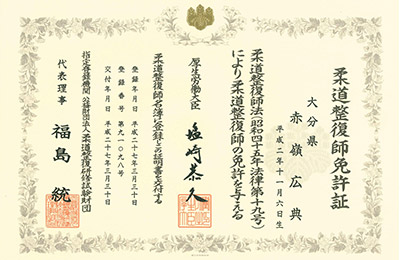 柔道整復師免許証
大分県
赤嶺広典
平成二年十一月六日生
柔道整復師法(昭和四十五年法律第十九号)
により柔道整復師の免許を与える
厚生労働大臣 塩崎恭久
柔道整復師名簿に登録しこの証明書を交付する
登録年月日 平成二十七年三月三十日
登録番号 第九一〇九八号
交付年月日 平成二十七年三月三十日
指定登録機関 公益財団法人柔道整復研修試験財団
代表理事 福島統